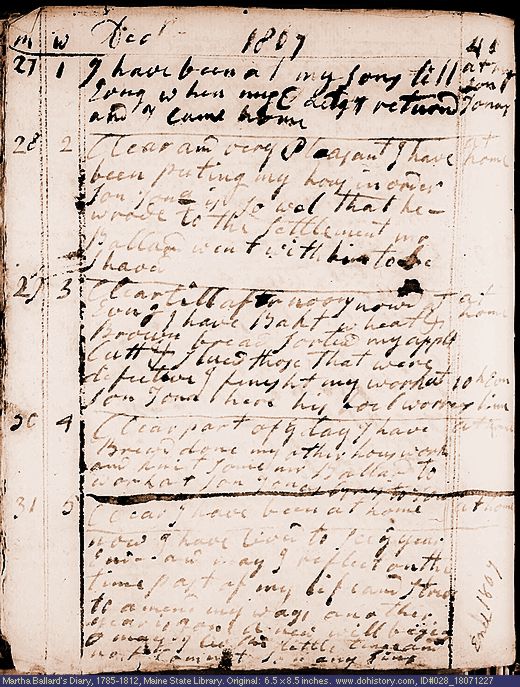 m w Decr 1807
27 1 I have been at my sons till at my
Evng when returnd sons
and I came home Jonas
28 2 Clear and very Pleasant I have at
been puting my hous in order home
son Jonas is so wel that he
wrode to the settlement mr
Ballard went with him to be
shavd
29 3 Clear till afternoon snowd at at
Evng I have Bakt wheat & home
Brown bread sorted my appls
Cutt & stued those that were
defective I finisht my work at
son Jonas here
30 4 Clear part of ye day I have at home
Brew'd done my other hous work
and knit some mr Ballard to
work at son Jonas
31 5 Clear I have been at home at home
now I have livd to see ye year
Ende and may I reflect on the
time past of my life and strive
to amend my ways another
year is gone a new will begin
O may I
End 1807
Martha Ballard's Diary, 1785-1812, Maine State Library. Original: 6.5 x 8.5 inches. www.dohistory.com, ID#028_18071227